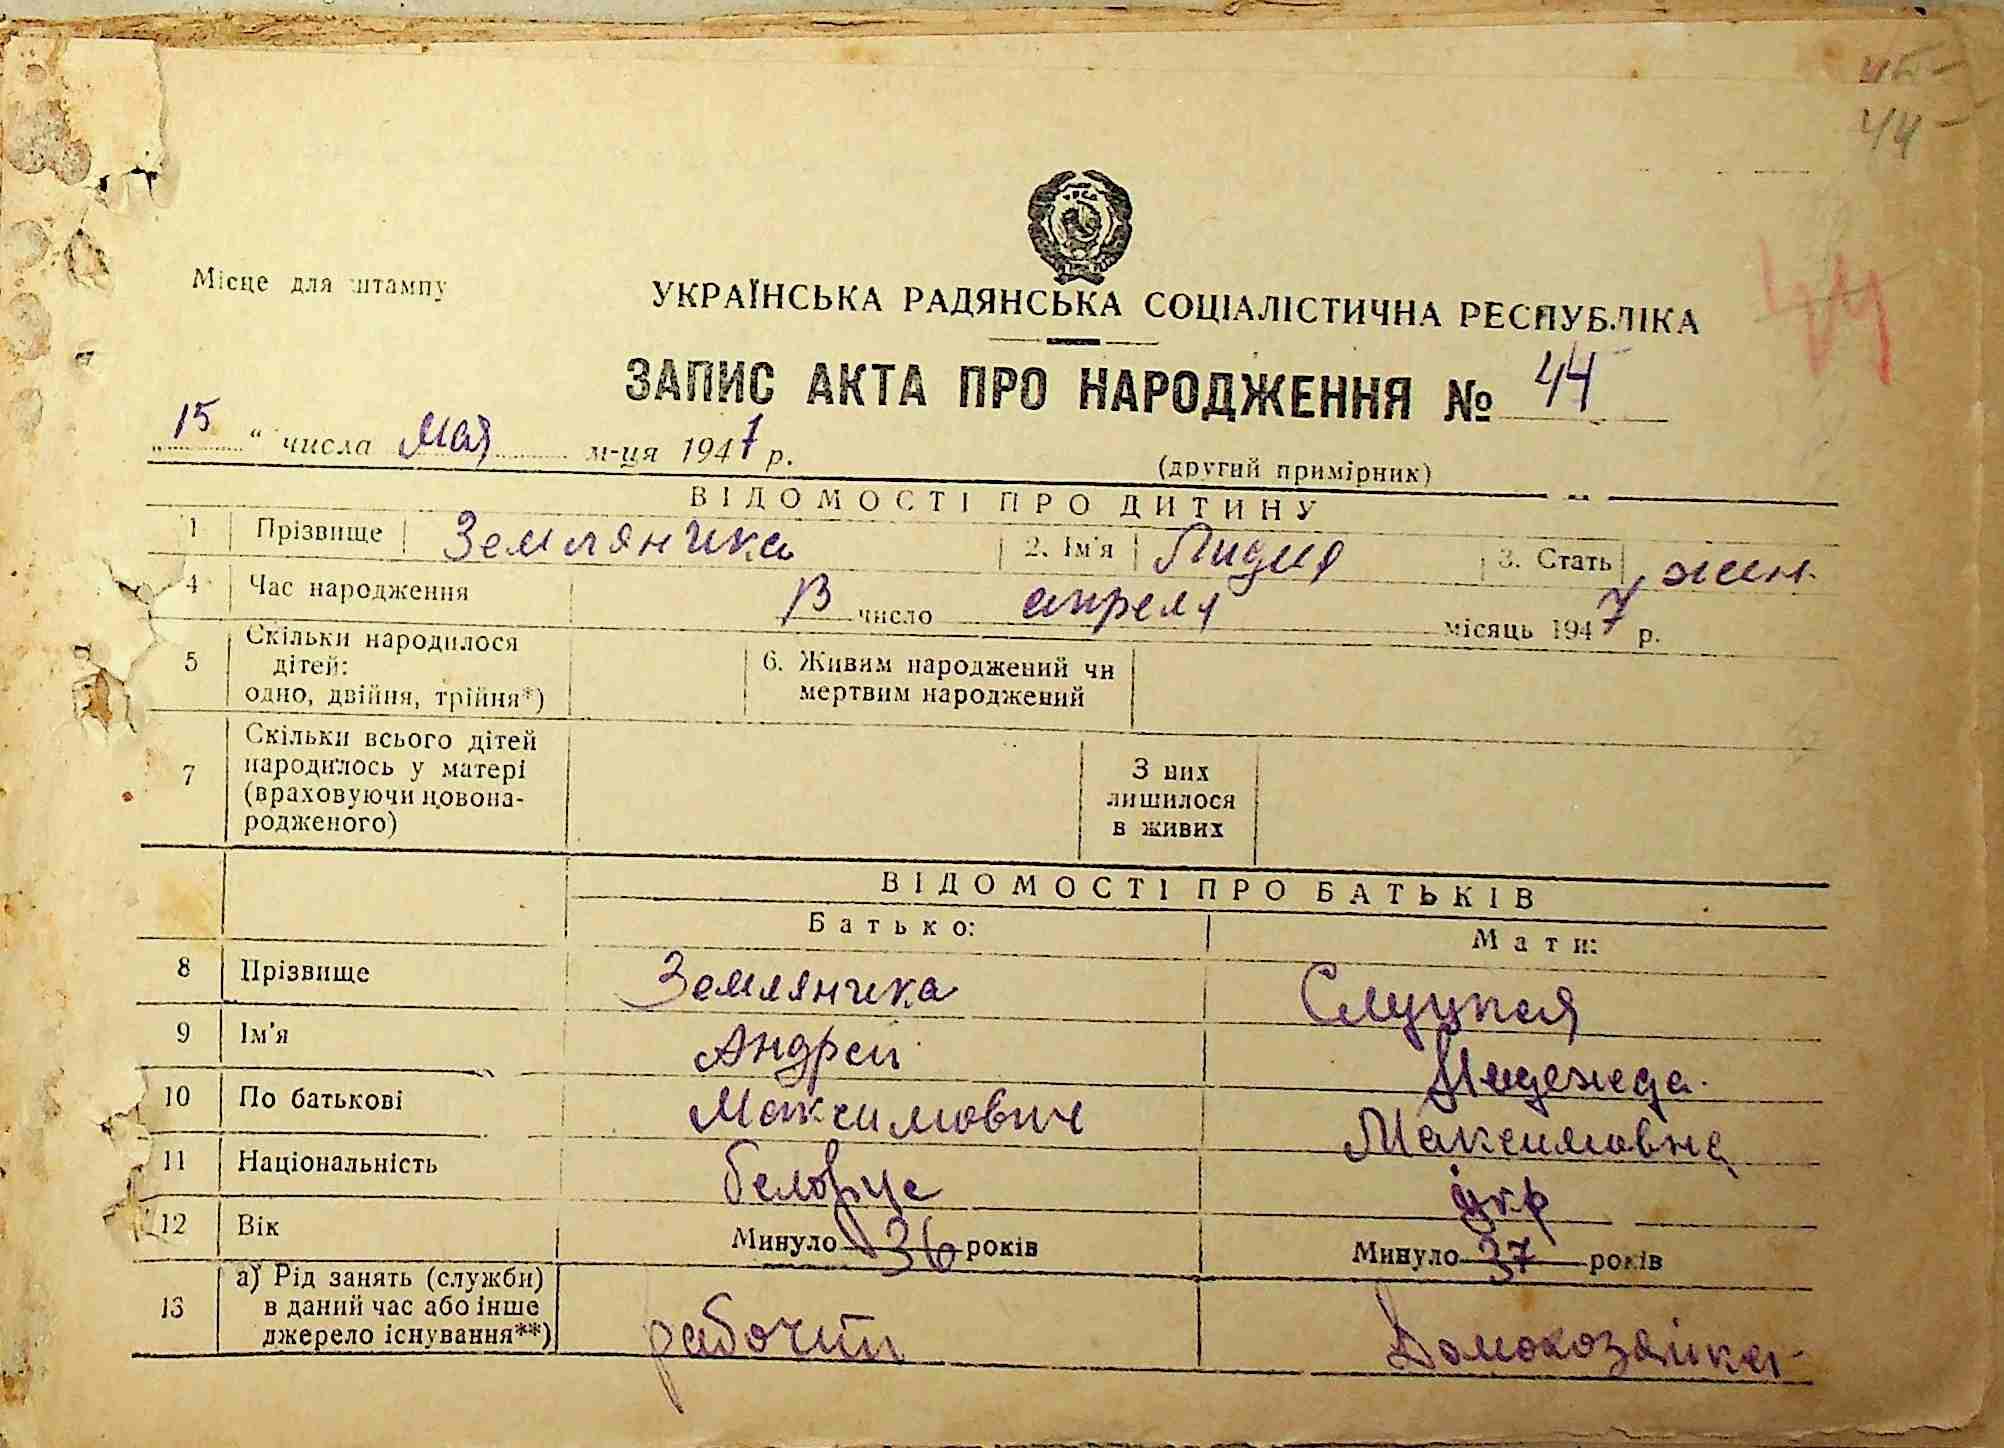 44-
44
Місце для штампу
УКРАЇНСЬКА РАДЯНСЬКА СОЦІАЛІСТИЧНА РЕСПУБЛІКА
ЗАПИС АКТА ПРО НАРОДЖЕННЯ № 44
„ 15 “ числа мая м-ця 1947 р.
(другий примірник)
ВІДОМОСТІ ПРО ДИТИНУ
1 Прізвище Землянчика 2. Ім'я Лидия 3. Стать жен.
4 Час народження 13 число апреля місяць 1947 р.
5 Скільки народилося дітей: одно, двійня, трійня*) 6. Живим народжений чи мертвим народжений
7 Скільки всього дітей народилось у матері (враховуючи новонародженого) З них лишилося в живих
ВІДОМОСТІ ПРО БАТЬКІВ
Батько: Мати:
8 Прізвище Землянчика Слуцкая
9 Ім'я Андрей Надежда
10 По батькові Максимович Максимовна
11 Національність белорус укр
12 Вік Минуло 36 років Минуло 37 років
13 а) Рід занять (служби) в даний час або інше джерело існування**) рабочий Домохозяйка